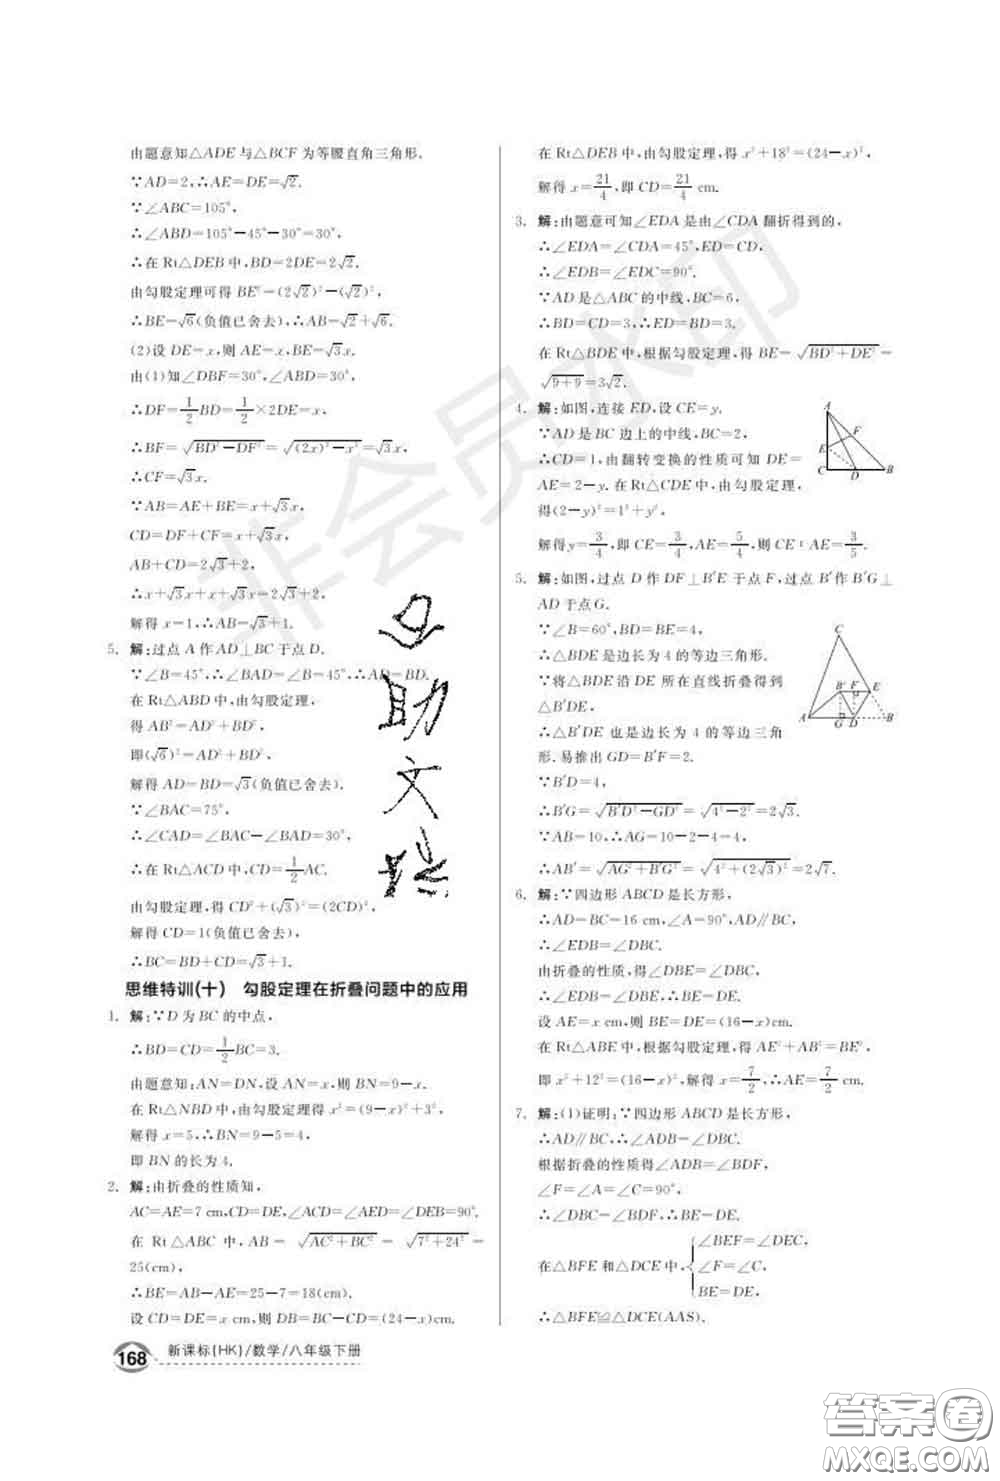 由题意知△ADE与△BCF为等腰直角三角形.
∵AD=2,∴AE=DE=√2.
∵∠ABC=105°,
∴∠ABD=105°-45°-30°=30°.
∴在Rt△DEB中,BD=2DE=2√2.
由勾股定理可得BE²=(2√2)²-(√2)²,
∴BE=√6(负值已舍去),∴AB=√2+√6.
(2)设DE=x,则AE=x,BE=√3x.
由(1)知∠DBF=30°,∠ABD=30°,
∴DF=1/2BD=1/2×2DE=x,
∴BF=√(BD²-DF²)=√((2x)²-x²)=√3x,
∴CF=√3x.
∵AB=AE+BE=x+√3x,
CD=DF+CF=x+√3x,
AB+CD=2√3+2,
∴x+√3x+x+√3x=2√3+2,
解得x=1,∴AB=√3+1.
5. 解:过点A作AD⊥BC于点D.
∵∠B=45°,∴∠BAD=∠B=45°,∴AD=BD.
在Rt△ABD中,由勾股定理,
得AB²=AD²+BD²,
即(√6)²=AD²+BD²,
解得AD=BD=√3(负值已舍去).
∵∠BAC=75°,
∴∠CAD=∠BAC-∠BAD=30°,
∴在Rt△ACD中,CD=1/2AC.
由勾股定理,得CD²+(√3)²=(2CD)²,
解得CD=1(负值已舍去),
∴BC=BD+CD=√3+1.
思维特训(十) 勾股定理在折叠问题中的应用
1. 解:∵D为BC的中点,
∴BD=CD=1/2BC=3.
由题意知:AN=DN,设AN=x,则BN=9-x.
在Rt△NBD中,由勾股定理得x²=(9-x)²+3²,
解得x=5,∴BN=9-5=4,
即BN的长为4.
2. 解:由折叠的性质知,
AC=AE=7 cm,CD=DE,∠ACD=∠AED=∠DEB=90°.
在Rt△ABC中,AB=√(AC²+BC²)=√(7²+24²)=
25(cm),
∴BE=AB-AE=25-7=18(cm).
设CD=DE=x cm,则DB=BC-CD=(24-x)cm.
在Rt△DEB中,由勾股定理,得x²+18²=(24-x)²,
解得x=21/4,即CD=21/4 cm.
3. 解:由题意可知∠EDA是由∠CDA翻折得到的,
∴∠EDA=∠CDA=45°,ED=CD,
∴∠EDB=∠EDC=90°.
∵AD是△ABC的中线,BC=6,
∴BD=CD=3,∴ED=BD=3.
在Rt△BDE中,根据勾股定理,得BE=√(BD²+DE²)=
√(9+9)=3√2.
4. 解:如图,连接ED,设CE=y.
∵AD是BC边上的中线,BC=2,
∴CD=1,由翻转变换的性质可知DE=
AE=2-y.在Rt△CDE中,由勾股定理,
得(2-y)²=1²+y²,
解得y=3/4,即CE=3/4,AE=5/4,则CE:AE=3/5.
A
F
E
C
D
B
5. 解:如图,过点D作DF⊥B′E于点F,过点B′作B′G⊥
AD于点G.
∵∠B=60°,BD=BE=4,
∴△BDE是边长为4的等边三角形.
∵将△BDE沿DE所在直线折叠得到
△B′DE,
∴△B′DE也是边长为4的等边三角
形.易推出GD=B′F=2.
∵B′D=4,
∴B′G=√(B′D²-GD²)=√(4²-2²)=2√3.
∵AB=10,∴AG=10-2-4=4,
∴AB′=√(AG²+B′G²)=√(4²+(2√3)²)=2√7.
C
B′
F
E
A
G
D
B
6. 解:∵四边形ABCD是长方形,
∴AD=BC=16 cm,∠A=90°,AD∥BC,
∴∠EDB=∠DBC.
由折叠的性质,得∠DBE=∠DBC,
∴∠DBE=∠EDB,∴BE=DE.
设AE=x cm,则BE=DE=(16-x)cm.
在Rt△ABE中,根据勾股定理,得AE²+AB²=BE²,
即x²+12²=(16-x)²,解得x=7/2,∴AE=7/2 cm.
7. 解:(1)证明:∵四边形ABCD是长方形,
∴AD∥BC,∴∠ADB=∠DBC.
根据折叠的性质得∠ADB=∠BDF,
∠F=∠A=∠C=90°,
∴∠DBC=∠BDF,∴BE=DE.
在△BFE和△DCE中,{∠BEF=∠DEC,
∠F=∠C,
BE=DE,
∴△BFE≌△DCE(AAS).
168 新课标(HK)/数学/八年级下册
非会员水印
助
文
答案圈
MXQE.COM